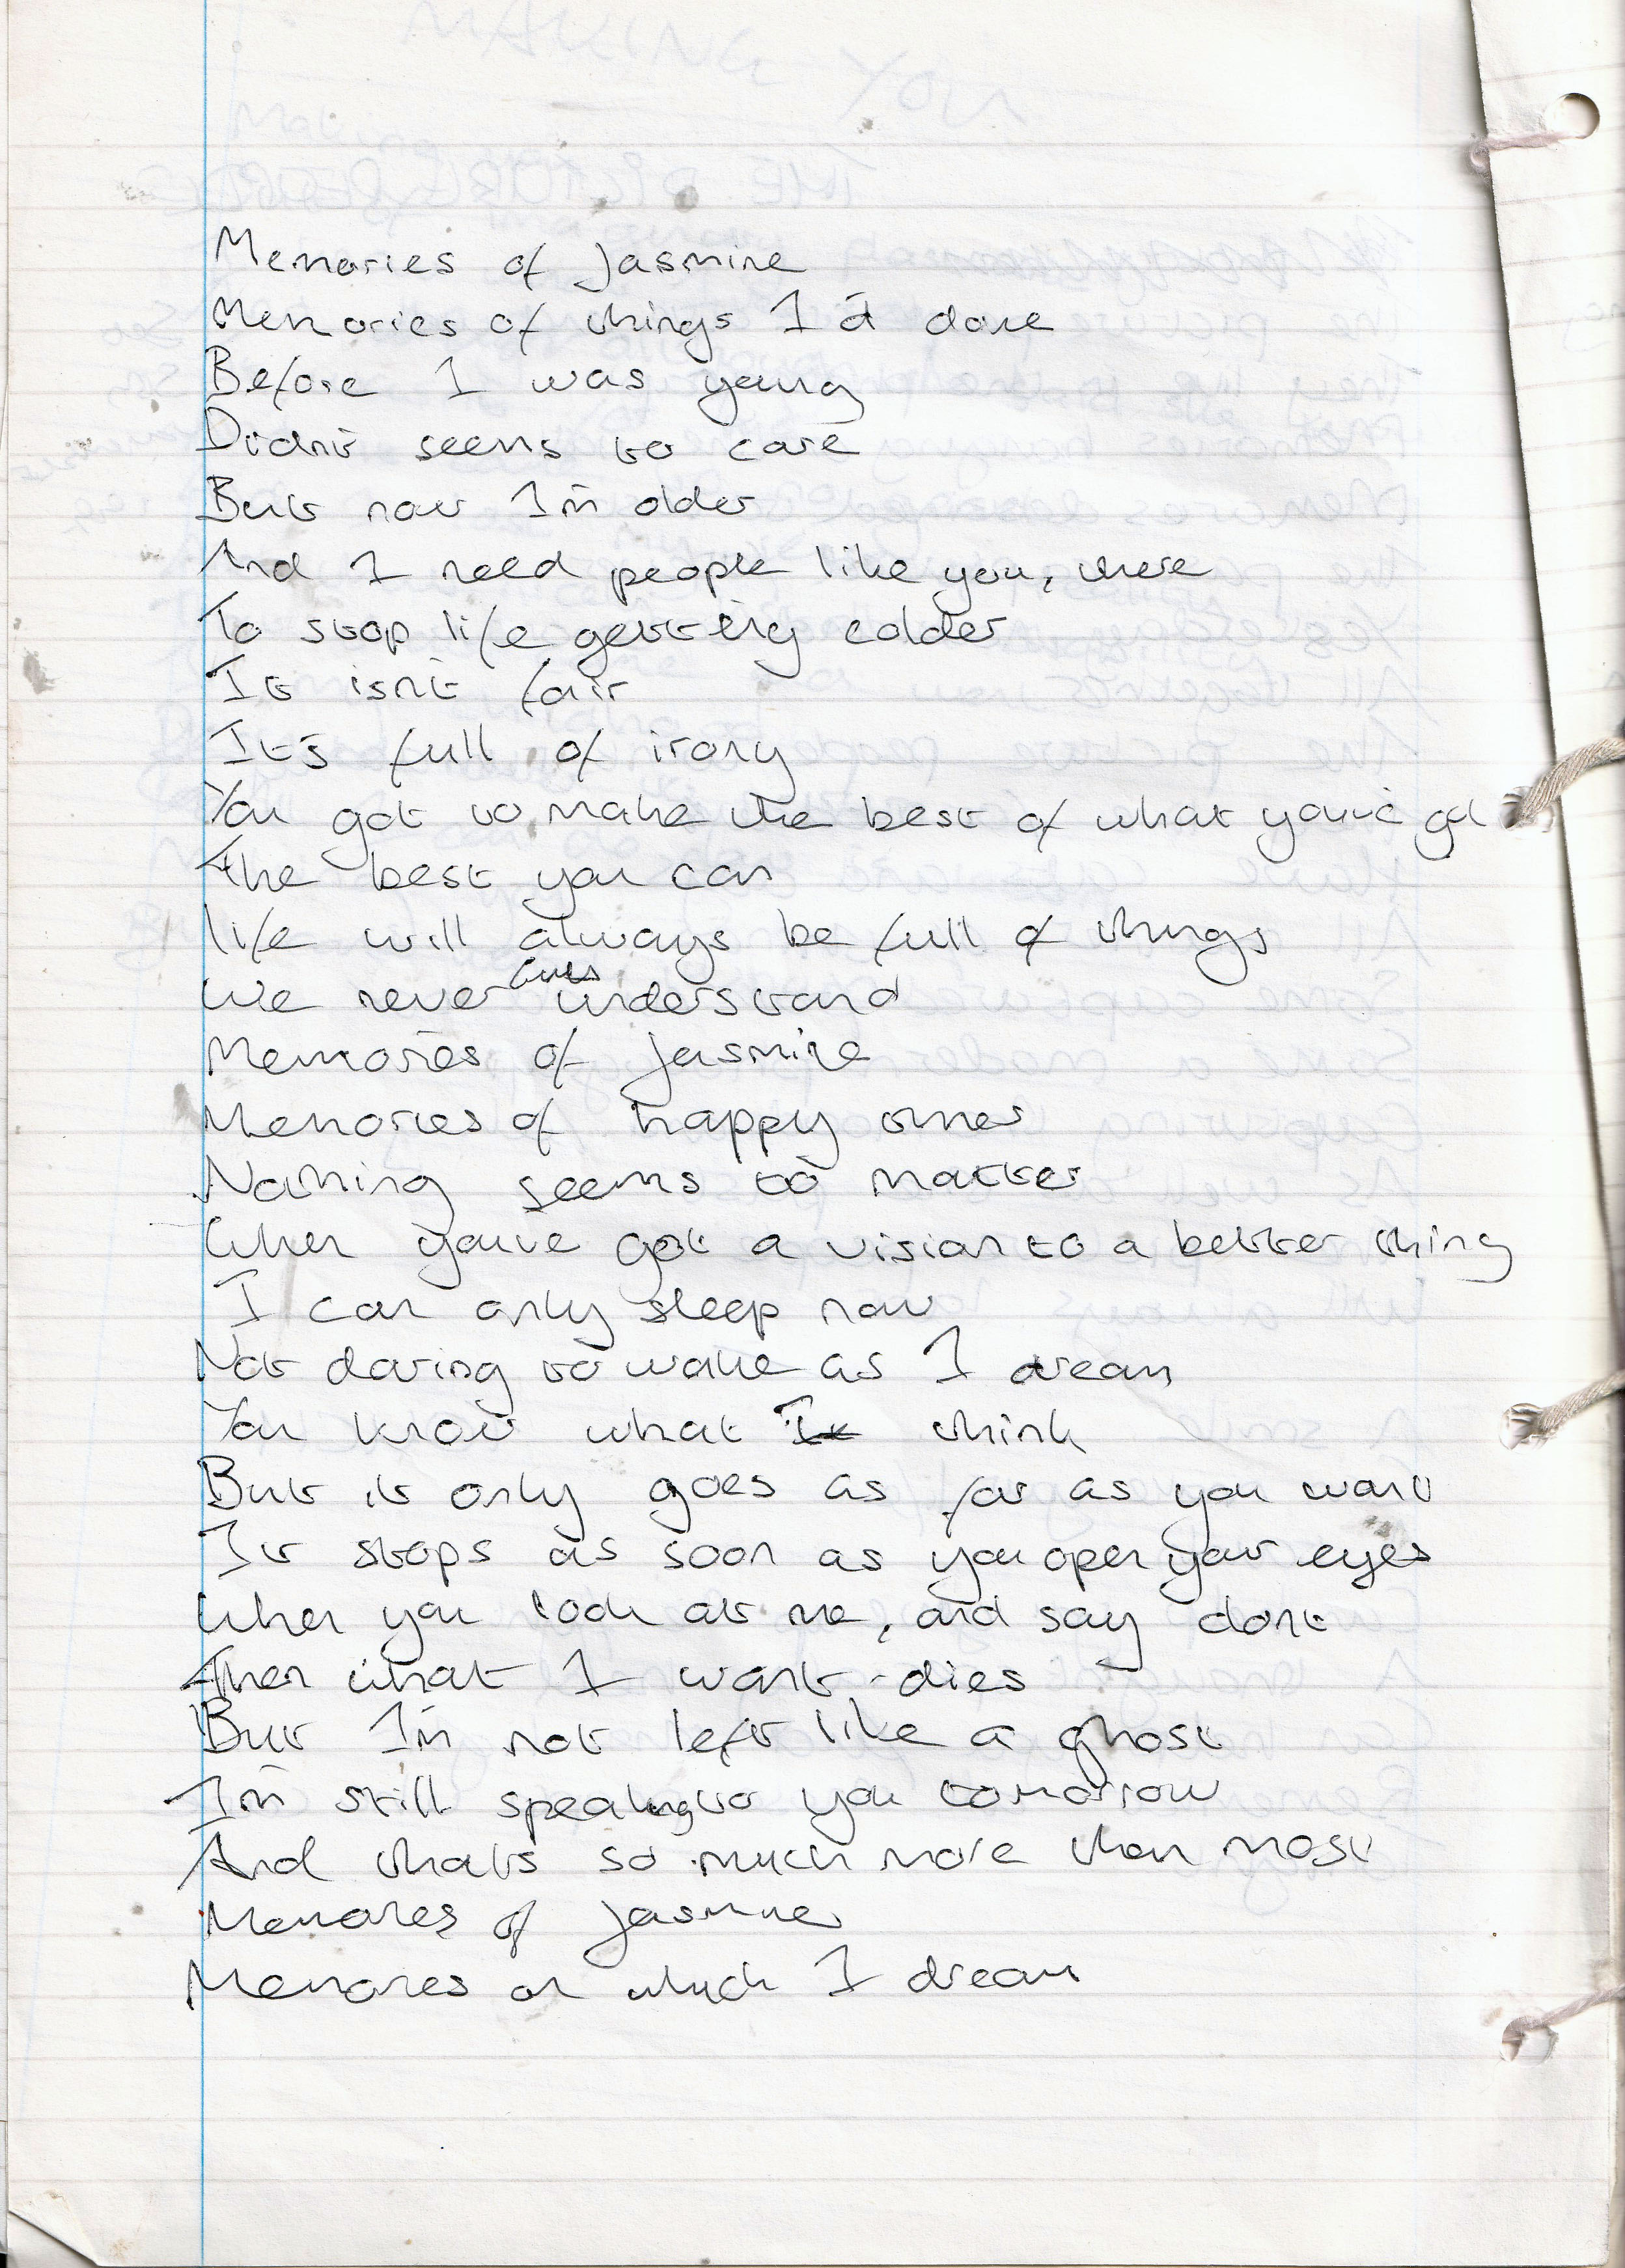 Memories of Jasmine
Memories of things I'd done
Before I was young
Didn't seems to care
But now I'm older
And I need people like you, there
To stop life getting colder
It isn't fair
It's full of irony
You got to make the best of what you've got
The best you can
life will always be full of things
We never understand
Memories of Jasmine
Memories of happy times
Nothing seems to matter
When you've got a vision to a better thing
I can only sleep now
Not daring to wake as I dream
You know what I think
But it only goes as far as you want
It stops as soon as you open your eyes
When you look at me, and say don't
Then what I want - dies
But I'm not left like a ghost
I'm still speaking to you tomorrow
And that's so much more than most
Memories of Jasmine
Memories on which I dream